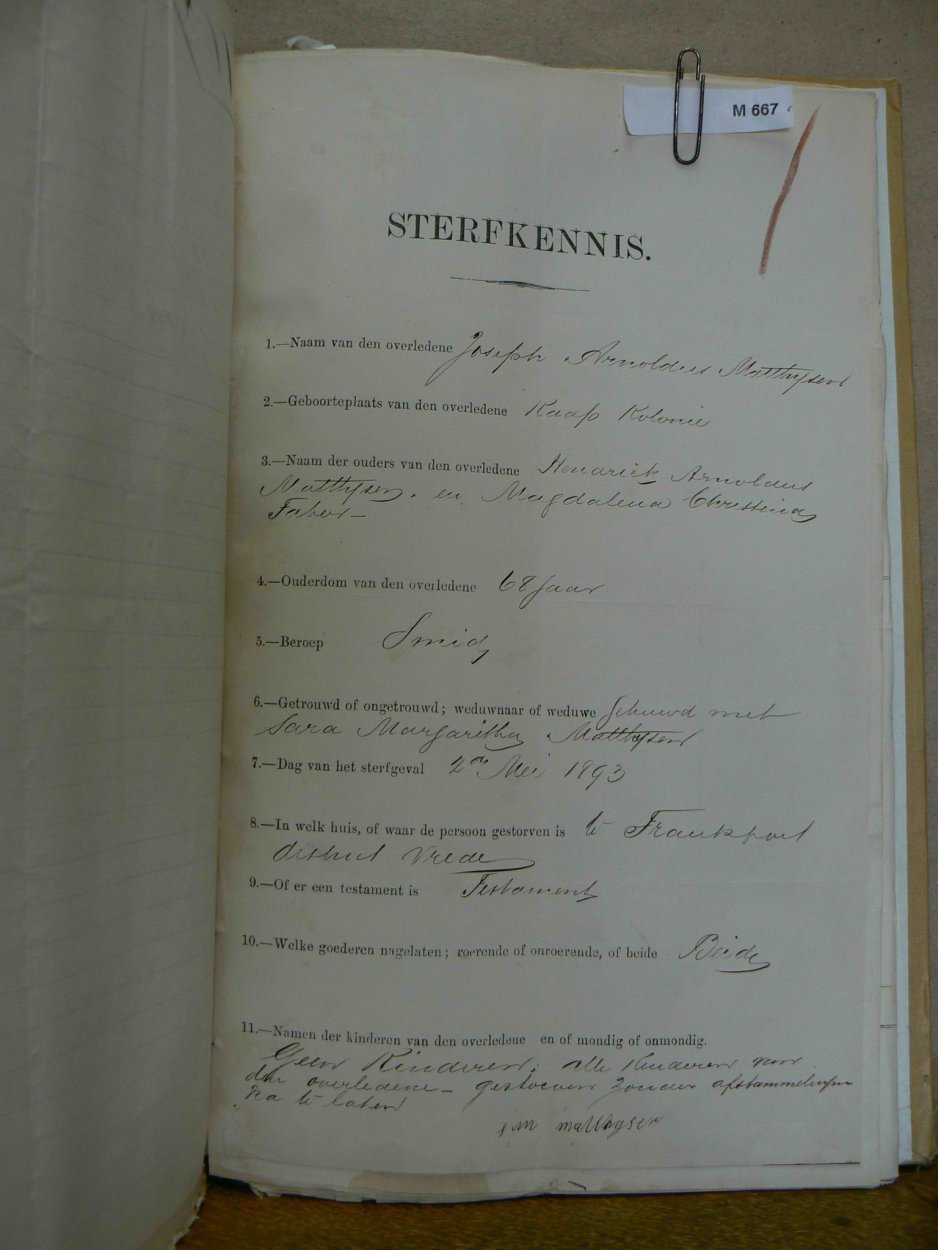 M 667
STERFKENNIS.
1.—Naam van den overledene Joseph Arnoldus Matthysen
2.—Geboorteplaats van den overledene Kaap Kolonie
3.—Naam der ouders van den overledene Hendrick Arnoldus
Matthysen. en Magdalena Christina
Faber—
4.—Ouderdom van den overledene 68 Jaar
5.—Beroep Smid
6.—Getrouwd of ongetrouwd; weduwnaar of weduwe Gehuwd met
Sara Margaritha Matthysen
7.—Dag van het sterfgeval 2de Mei 1893
8.—In welk huis, of waar de persoon gestorven is te Frankfort
district Vrede
9.—Of er een testament is Testament
10.—Welke goederen nagelaten; roerende of onroerende, of beide Beide
11.—Namen der kinderen van den overledene en of mondig of onmondig.
Geen Kinderen. alle Kinderen van
den overledene — gestorven zonder afstammelingen
na te laten
s m matthyser